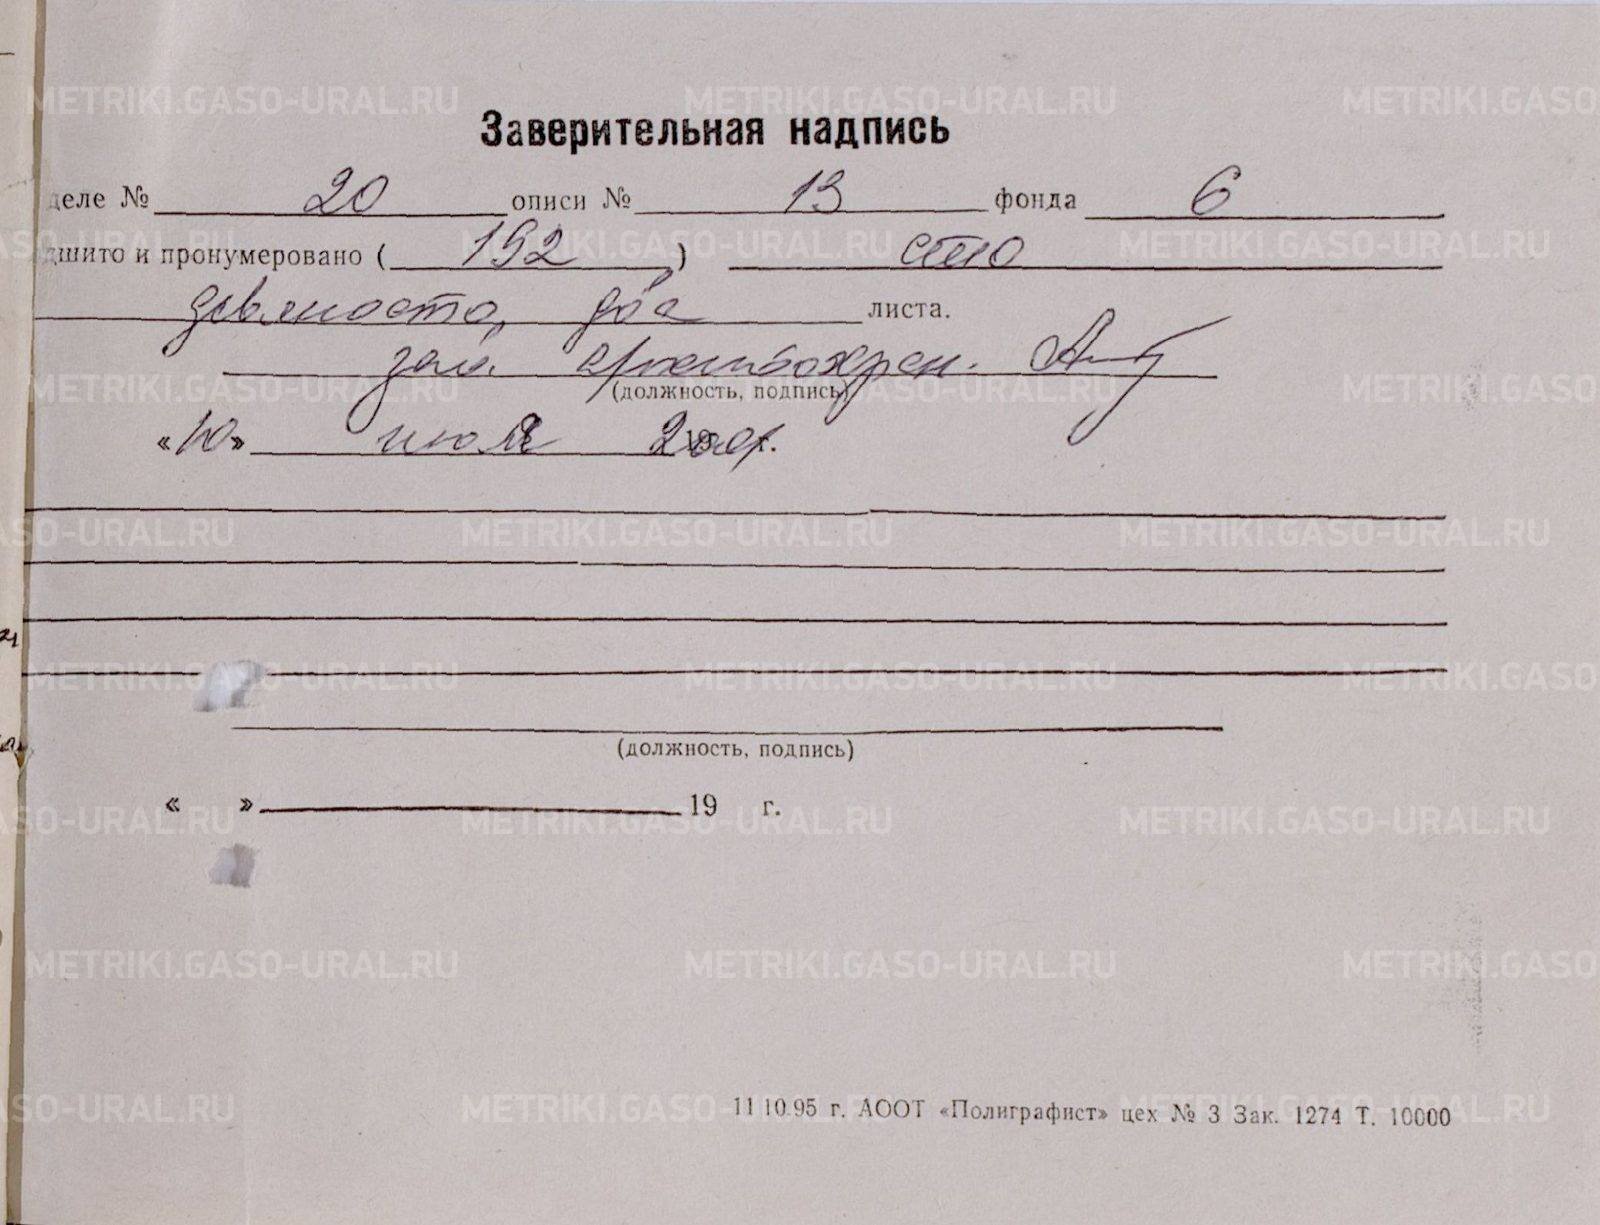 Заверительная надпись
деле № 20 описи № 13 фонда 6
дшито и пронумеровано ( 192 ) сто
девяносто два листа.
зав. архивохран.
(должность, подпись)
«10» июля г.
(должность, подпись)
« » 19 г.
11 10.95 г. АООТ «Полиграфист» цех № 3 Зак. 1274 Т. 10000
METRIKI.GASO-URAL.RU